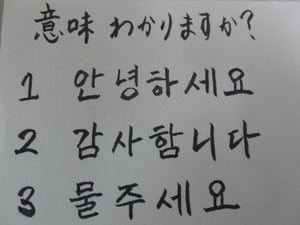 意味 わかりますか?
1 안녕하세요
2 감사함니다
3 물주세요